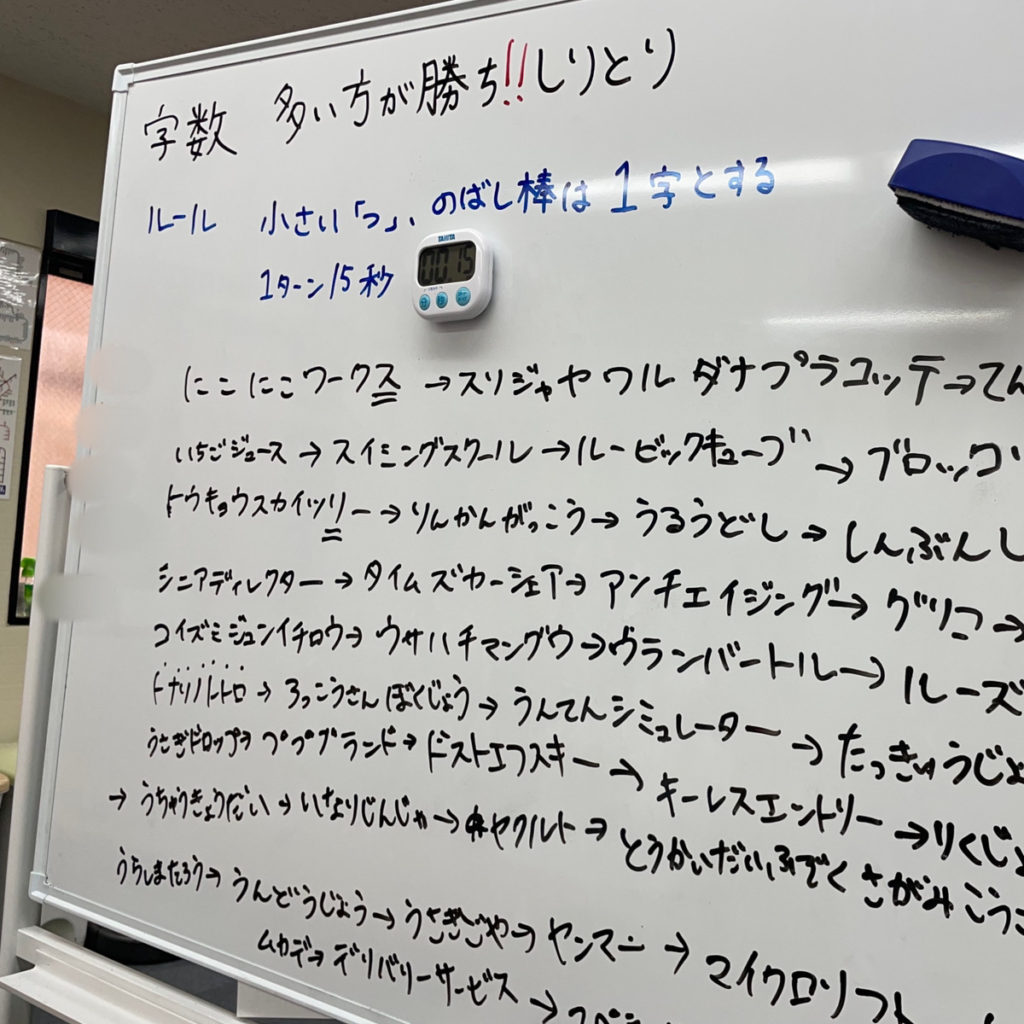 字数 多い方が勝ち!!しりとり
ルール 小さい「っ」、のばし棒は1字とする
1ターン15秒
TANITA
00 15
にこにこワークス→スリジャヤワルダナプラコッテ→てん
いちごジュース→スイミングスクール→ルービックキューブ→ブロッコ
トウキョウスカイツリー→りんかんがっこう→うるうどし→しんぶんし
シニアディレクター→タイムズカーシェア→アンチエイジング→グリコ→
コイズミジュンイチロウ→ウサハチマングウ→ウランバートル→ルーズ
トナリノトトロ→ろっこうさんぼくじょう→うんてんシミュレーター→たっきゅうじょ
うさぎドロップ→ププブランド→ドストエフスキー→キーレスエントリー→りくじょ
→うちゅうきょうだい→いなりじんじゃ→ヤクルト→とうかいだいふぞくさがみこうこ
うらしまたろう→うんどうじょう→うさぎごや→ヤンマー→マイクロソフト
ムカデ→デリバリーサービス→スペシ